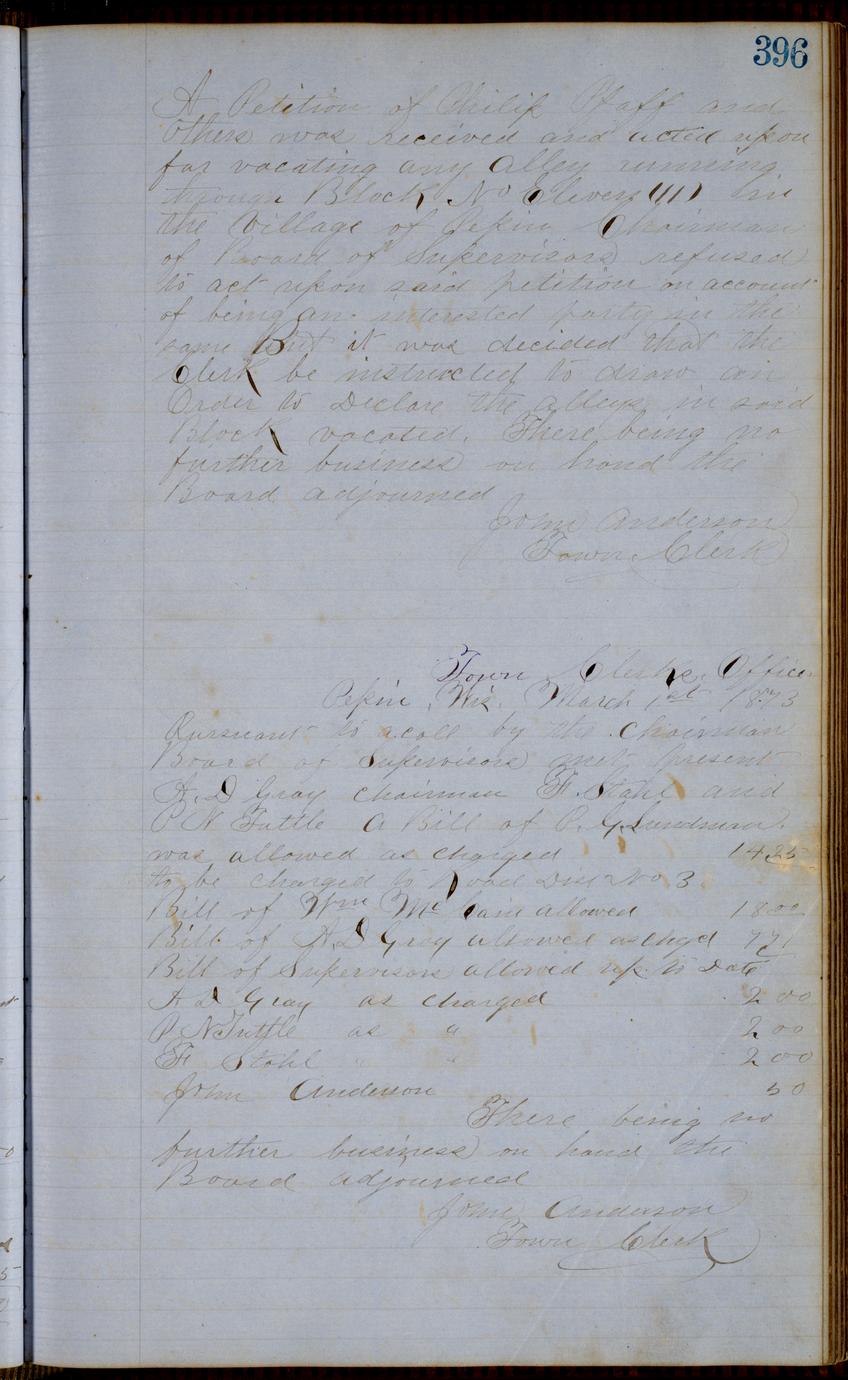 396
A Petition of Philip Pfaff and
others was received and acted upon
for vacating any Alley running
through Block No Eleven (11) in
the Village of Pepin Chairman
of Board of Supervisors refused
to act upon said petition on account
of being an interested party in the
same But it was decided that the
Clerk be instructed to draw an
Order to Declare the alleys in said
Block vacated. There being no
further business on hand the
Board adjourned
John Anderson
Town Clerk
Town Clerks Office
Pepin, Wis. March 1st 1873
Pursuant to a call by the Chairman
Board of Supervisors met, present
A. D Gray Chairman F. Stahl and
P N Tuttle A Bill of P. G.
was allowed as charged 14 25
to be charged to Road Dist No 3.
Bill of Wm Mc Cain allowed 18 00
Bill of A. D Gray allowed as chgd 7 71
Bill of Supervisors allowed up to Date
A D Gray as charged 2 00
P N Tuttle as " 2 00
F Stahl " " 2 00
John Anderson 50
There being no
further business on hand the
Board adjourned
John Anderson
Town Clerk